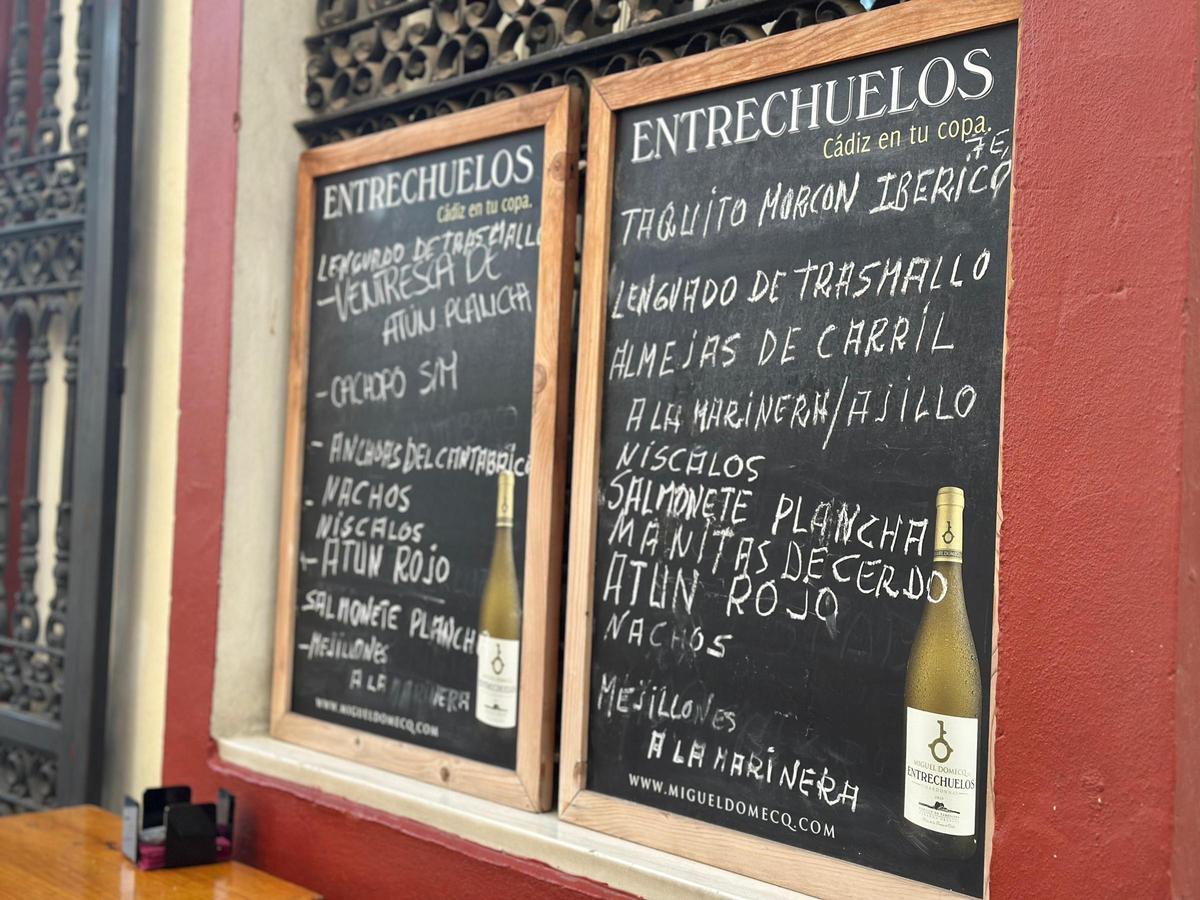 ENTRECHUELOS
Cádiz en tu copa.
LENGUADO DE TRASMALLO
-VENTRESCA DE
ATÚN PLANCHA
- CACHOPO S/M
- ANCHOAS DEL CANTABRICO
- NACHOS
NÍSCALOS
- ATÚN ROJO
SALMONETE PLANCHA
-MEJILLONES
A LA MARINERA
WWW.MIGUELDOMECQ.COM
ENTRECHUELOS
ENTRECHUELOS
Cádiz en tu copa.
7€,
TAQUITO MORCON IBERICO
LENGUADO DE TRASMALLO
ALMEJAS DE CARRIL
A LA MARINERA/AJILLO
NISCALOS
SALMONETE PLANCHA
MANITAS DE CERDO
ATUN ROJO
NACHOS
MEJILLONES
A LA MARINERA
WWW.MIGUELDOMECQ.COM
MIGUEL DOMECQ
ENTRECHUELOS
CHARDONNAY